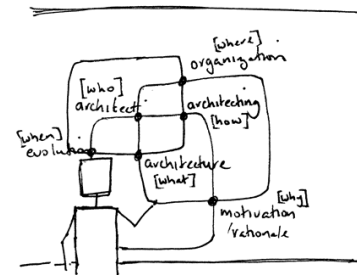 [where]
organization
[who]
architect
architecting
[how]
[when]
evolution
architecture
[what]
[why]
motivation
/rationale